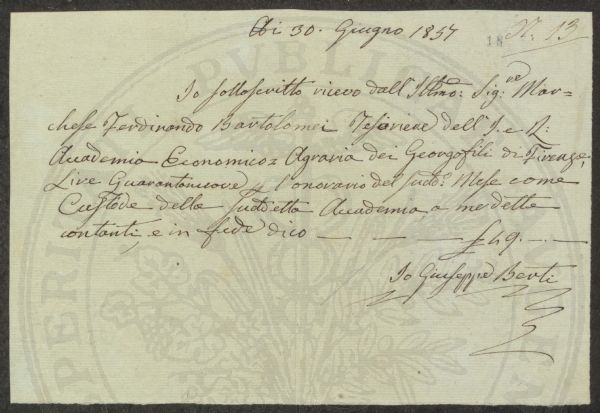 Adi 30. Giugno 1857
18 N.° 13
Io sottoscritto ricevo dall' Illmo: Sig.re Mar=
chese Ferdinando Bartolomei Tesoriere dell' I. e R:
Accademia Economico= Agraria dei Georgofili di Firenze,
Lire Quarantanove p l'onorario del sud.o Mese come
Custode della suddetta Accademia a me dette
contanti, e in fede dico — — — — £ 49. —
Io Giuseppe Berti
PUBLIC
PERI